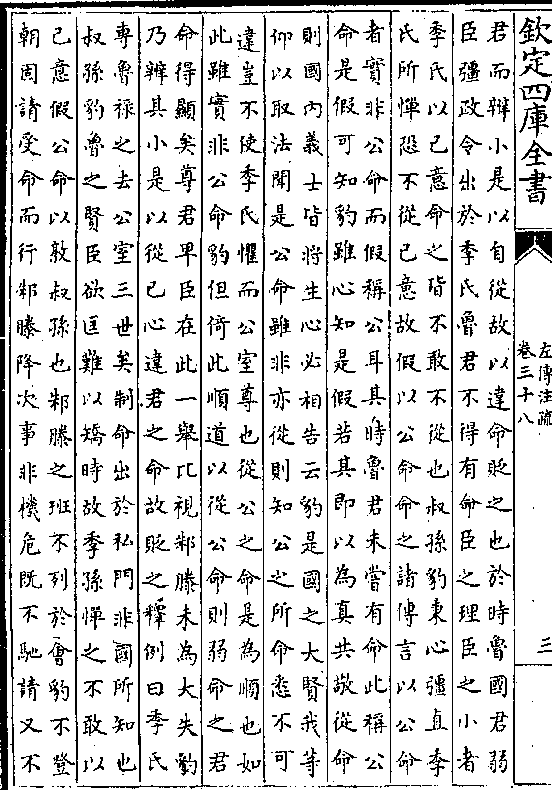 欽定四庫全書
左傳注疏
卷三十八
三
君而辨小是以自從故以違命貶之也於時魯國君弱
臣彊政令出於季氏魯君不得有命臣之理臣之小者
季氏以己意命之皆不敢不從也叔孫豹秉心彊直季
氏所憚恐不從己意故假以公命命之諸傳言以公命
者實非公命而假稱公耳其時魯君未嘗有命此稱公
命是假可知豹雖心知是假若其即以為真共敬從命
則國內義士皆將生心必相告云豹是國之大賢我等
仰以取法聞是公命雖非亦從則知公之所命悉不可
違豈不使季氏懼而公室尊也從公之命是為順也如
此雖實非公命豹但倚此順道以從公命則弱命之君
命得顯矣尊君卑臣在此一舉比視邾滕未為大失豹
乃辨其小是以從己心違君之命故貶之釋例曰季氏
專魯祿之去公室三世矣制命出於私門非國所知也
叔孫豹魯之賢臣欲匡難以矯時故季孫憚之不敢以
己意假公命以敦叔孫也邾滕之班不列於會豹不登
朝固請受命而行邾滕降次事非機危既不馳請又不